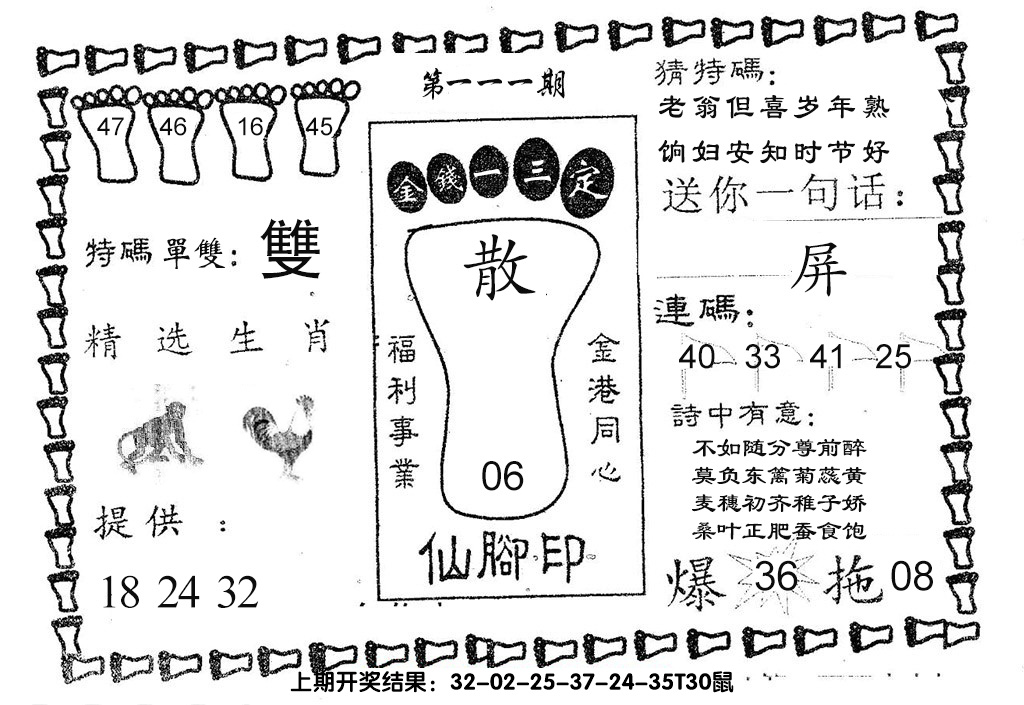 第一一一期
47 46 16 45
特碼單雙：雙
精选生肖
提供：
18 24 32
金錢一三定
散
福利事業
金港同心
06
仙腳印
猜特碼：
老翁但喜岁年熟
饷妇安知时节好
送你一句话：
屏
連碼：
40 33 41 25
詩中有意：
不如随分尊前醉
莫负东篱菊蕊黄
麦穗初齐稚子娇
桑叶正肥蚕食饱
爆 36 拖 08
上期开奖结果：32-02-25-37-24-35T30鼠